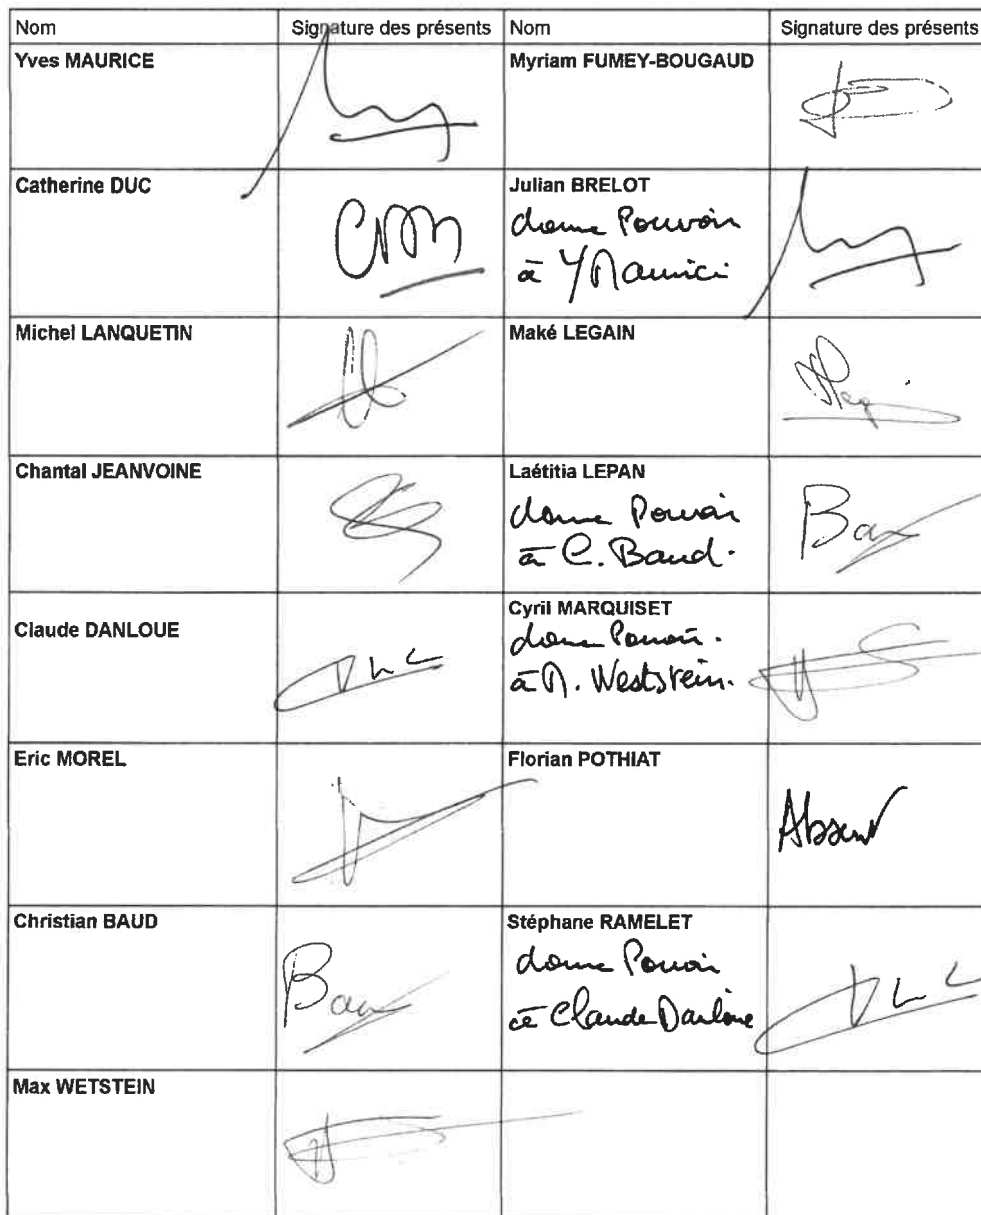 Nom Signature des présents Nom Signature des présents
Yves MAURICE Myriam FUMEY-BOUGAUD
Catherine DUC Julian BRELOT
donne Pouvoir
à Y Maurice
Michel LANQUETIN Maké LEGAIN
Chantal JEANVOINE Laétitia LEPAN
donne Pouvoir
à C. Baud.
Claude DANLOUE Cyril MARQUISET
donne Pouvoir.
à M. Weststein.
Eric MOREL Florian POTHIAT
Absent
Christian BAUD Stéphane RAMELET
donne Pouvoir
à Claude Danloue
Max WETSTEIN